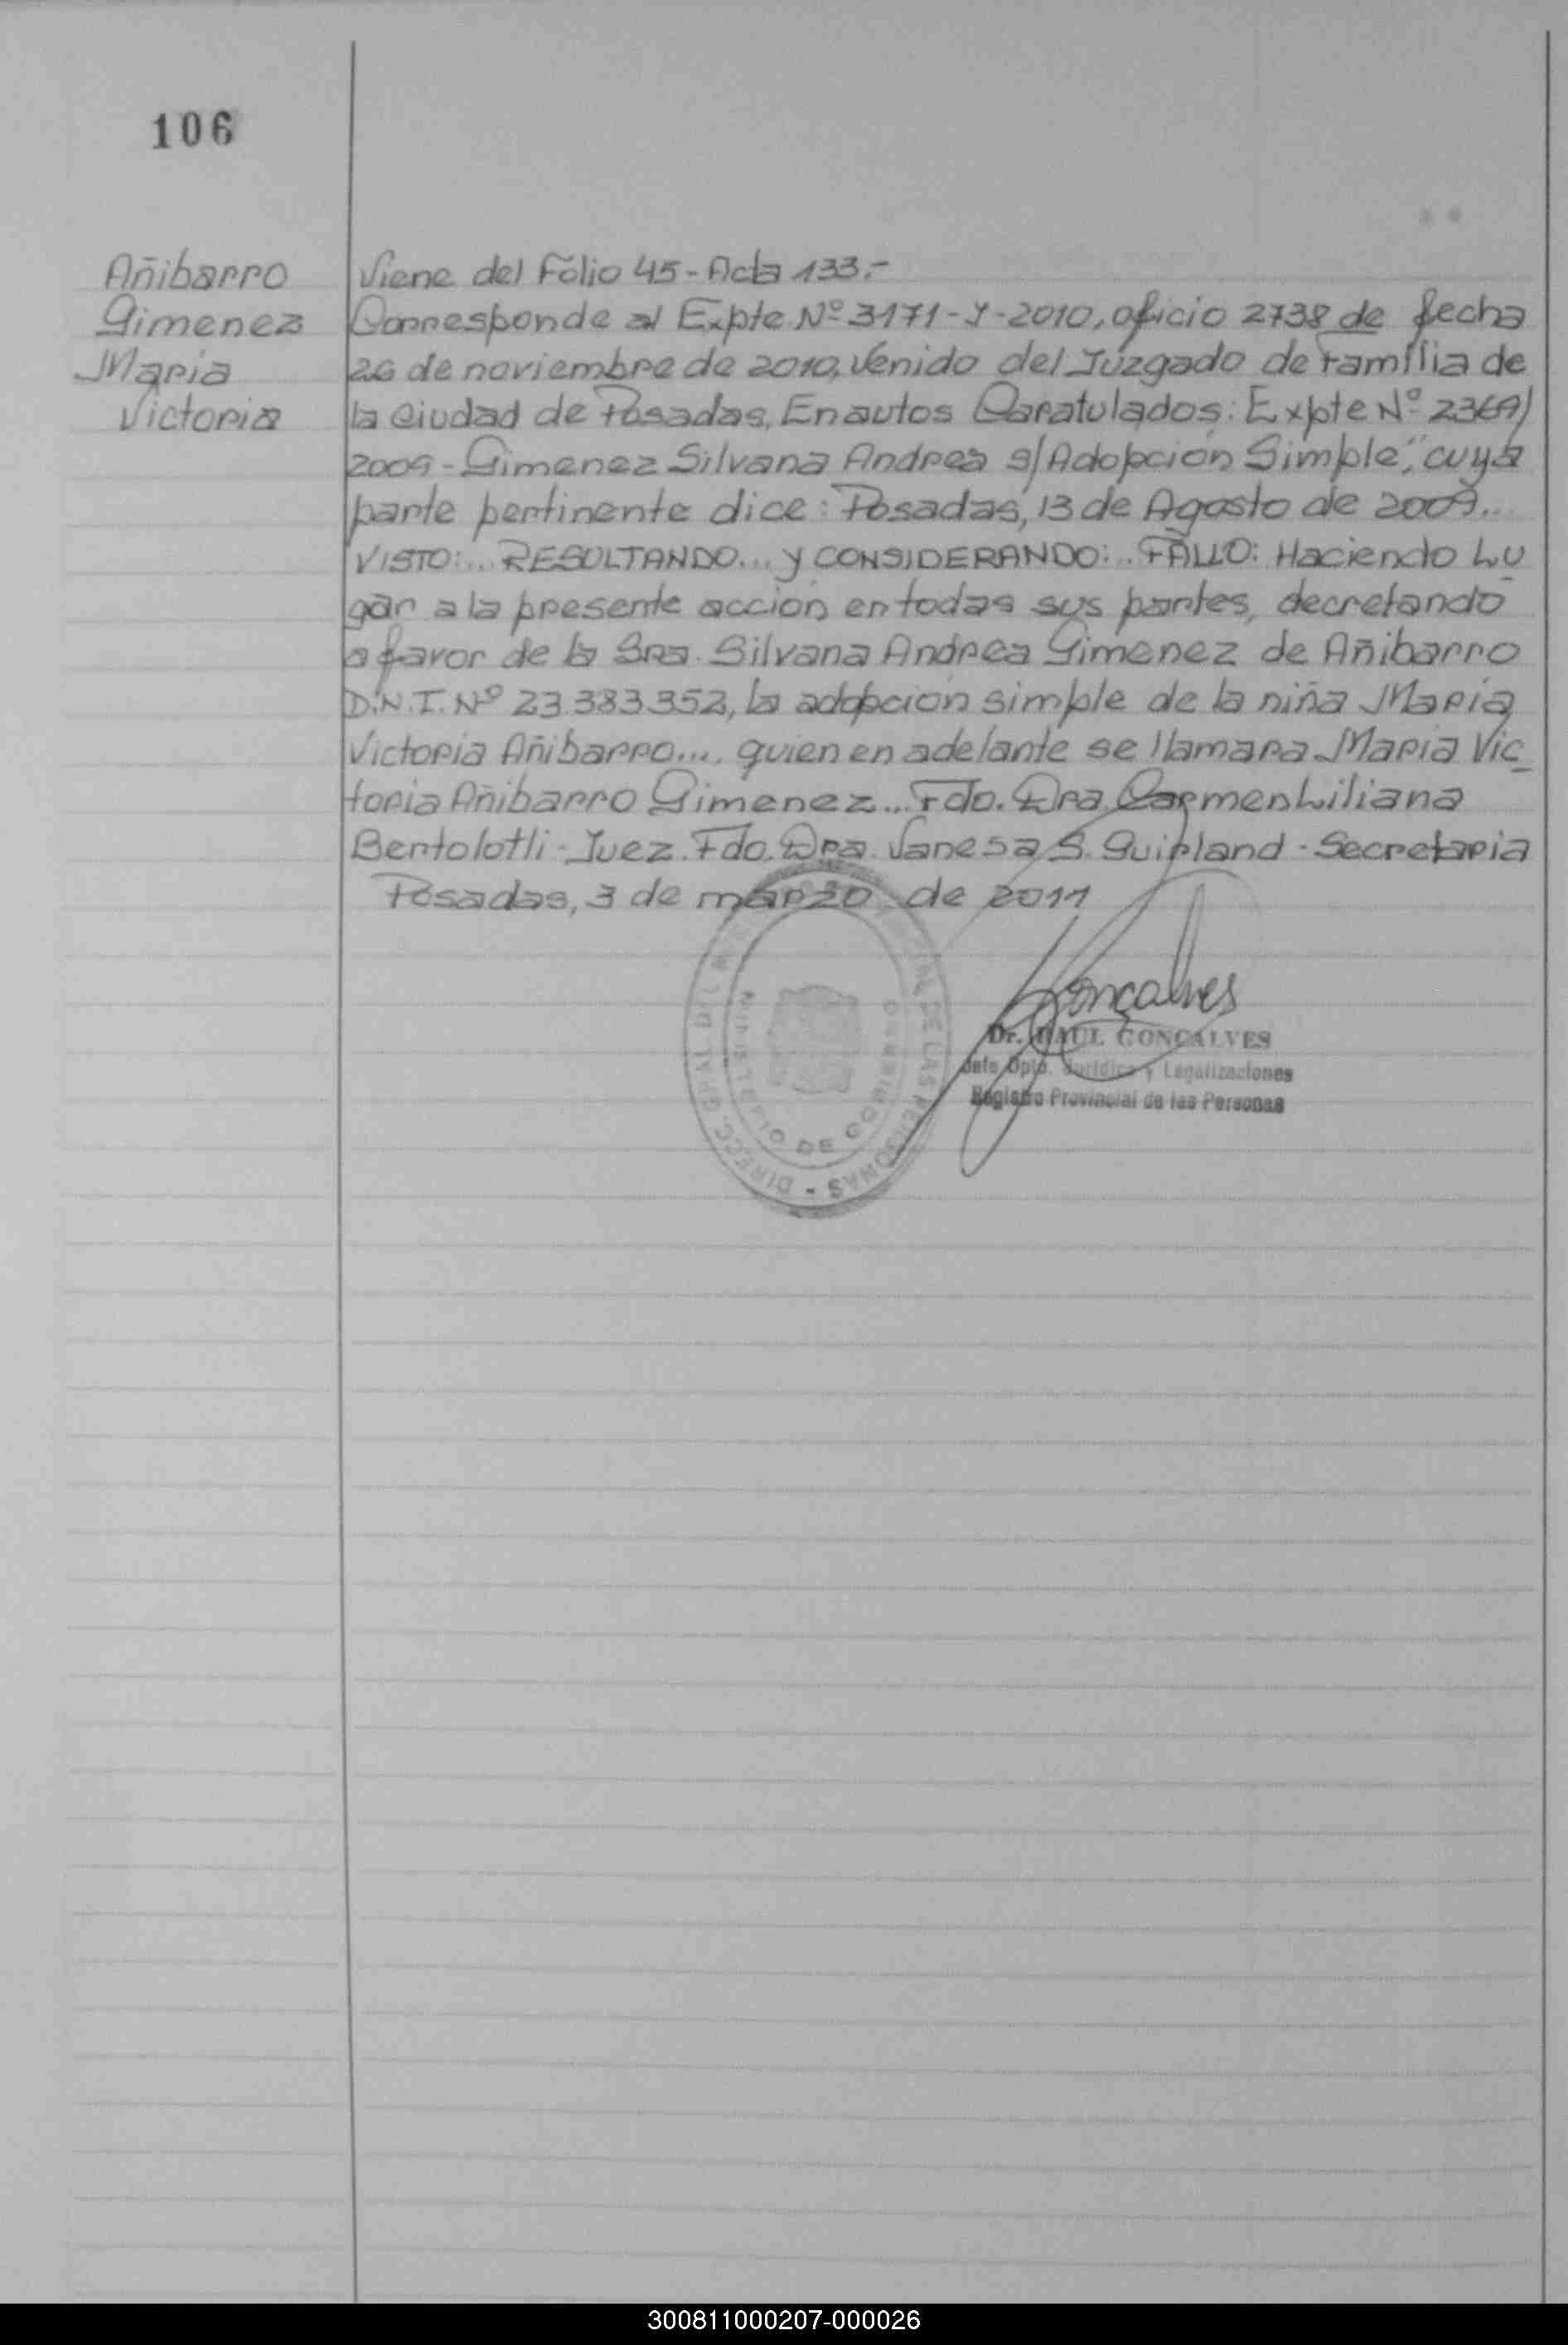 106
Añibarro
Gimenez
Maria
Victoria
Viene del Folio 45 - Acta 133.-
Corresponde al Expte Nº 3171-J-2010, oficio 2738 de fecha
26 de noviembre de 2010, venido del Juzgado de Familia de
la Ciudad de Posadas, En autos Caratulados: Expte Nº 2369/
2009 - Gimenez Silvana Andrea s/ Adopción Simple", cuya
parte pertinente dice: Posadas, 13 de Agosto de 2009...
VISTO:... RESULTANDO... y CONSIDERANDO:... FALLO: Haciendo Lu
gar a la presente acción en todas sus partes, decretando
a favor de la Sra. Silvana Andrea Gimenez de Añibarro
D.N.I. Nº 23.383.352, la adopción simple de la niña Maria
Victoria Añibarro..., quien en adelante se llamara Maria Vic_
toria Añibarro Gimenez... Fdo. Dra. Carmen Liliana
Bertolotti - Juez. Fdo. Dra. Vanesa S. Guirland - Secretaria
Posadas, 3 de marzo de 2011
Gonçalves
Dr. RAUL GONCALVES
Jefe Dpto. Jurídico y Legalizaciones
Registro Provincial de las Personas
DE LAS PERSONAS - DIRECC. GRAL DEL
MINISTERIO DE GOBIERNO
300811000207-000026